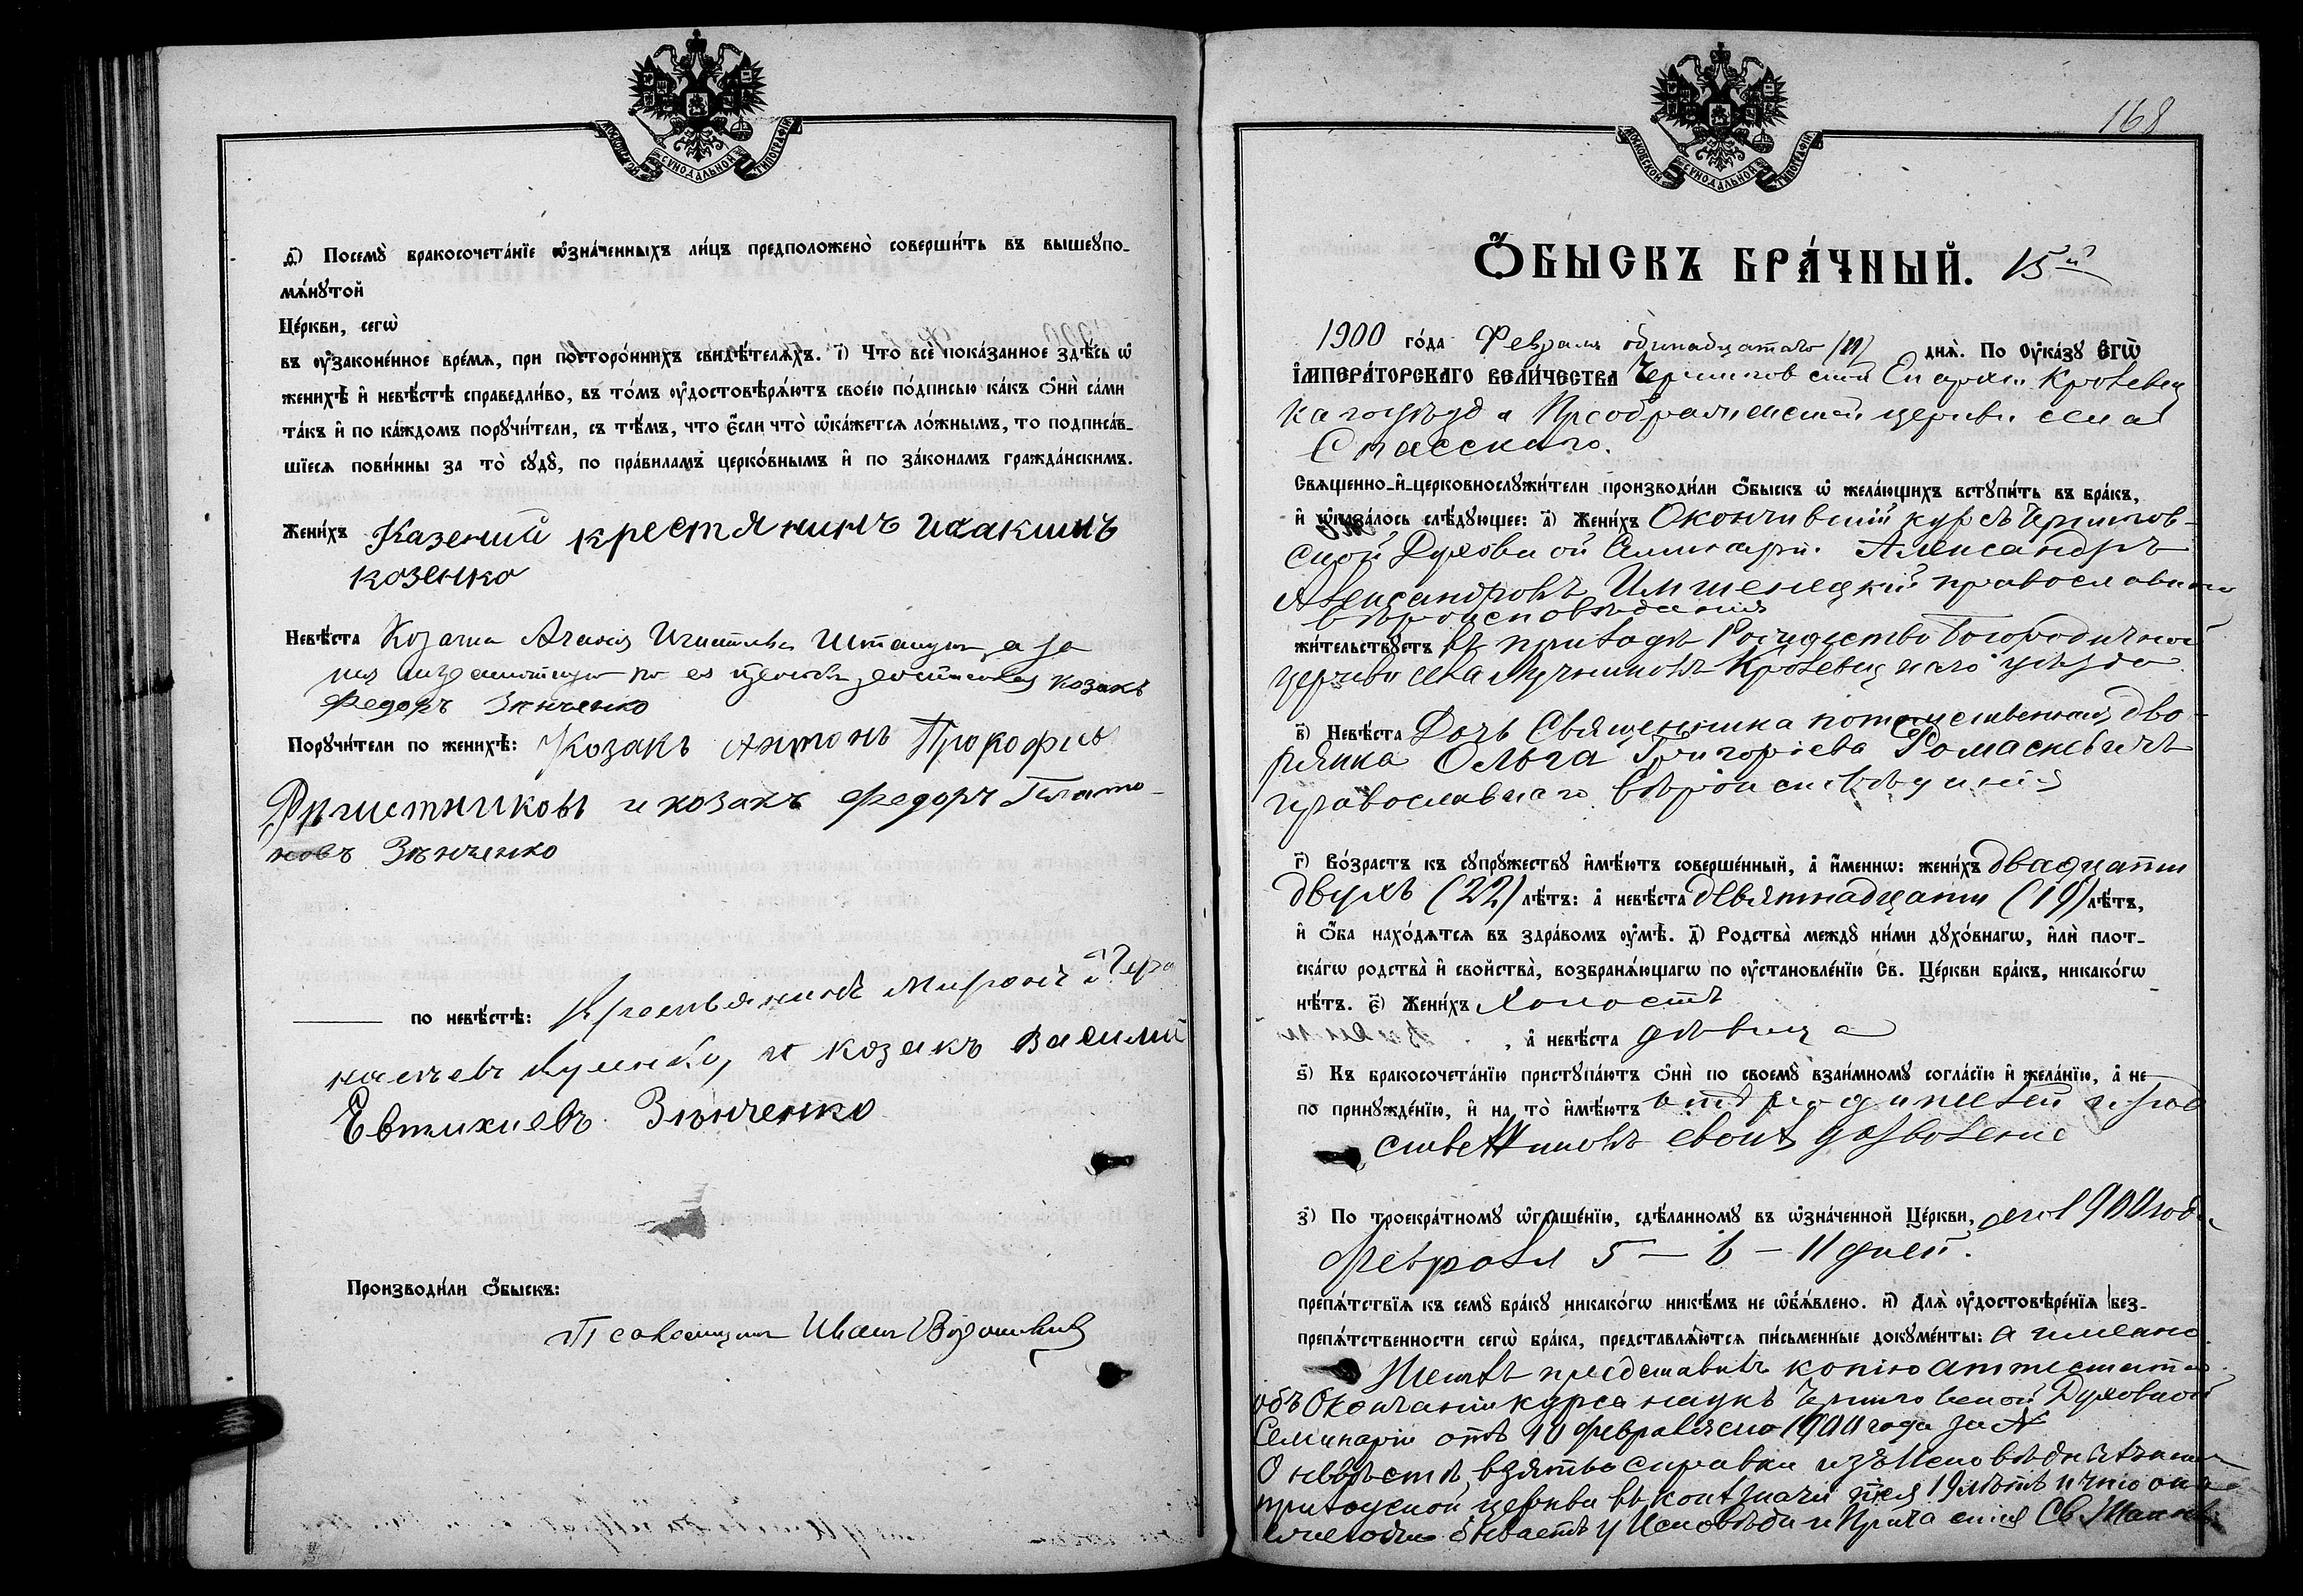 МОСКОВСКОЙ СѴНОДАЛЬНОЙ ТИПОГРАФІИ
д҃) Посемꙋ̀ бракосочета́нїе ѡ҆зна́ченныхъ ли́цъ предположено̀ соверши́ть въ вышеꙋпо-
мѧ́нꙋтой
Це́ркви, сегѡ̀
въ ᲂу҆законе́нное вре́мѧ, при посторо́ннихъ свидѣ́телѧхъ. і҃) Что̀ всѐ пока́занное здѣ́сь ѡ҆
женихѣ̀ и҆ невѣ́стѣ справедли́во, въ то́мъ ᲂу҆достовѣрѧ́ютъ свое́ю по́дписью ка́къ ѻ҆нѝ са́ми
та́къ и҆ по ка́ждомъ порꙋчи́тели, съ тѣ́мъ, что є҆́сли что̀ ѡ҆ка́жетсѧ ло́жнымъ, то подписа́в-
шїесѧ пови́нны за то̀ сꙋдꙋ̀, по пра́виламъ церко́внымъ и҆ по зако́намъ гражда́нскимъ.
Жени́хъ Казений крестянинъ Иоакимъ
козенко
Невѣ́ста Козачка
Козакъ
Федоръ Зѣнченко
Порꙋчи́тели по женихѣ̀: Козакъ Антонъ Прокофиев
и козакъ Федоръ Плато-
новъ Зѣнченко
по невѣ́стѣ: Крестьянинъ Миронъ
и козакъ Василий
Евтихиевъ Зѣнченко
Производи́ли ѻ҆́быскъ:
Псаломщикъ Иванъ
168
МОСКОВСКОЙ СѴНОДАЛЬНОЙ ТИПОГРАФІИ
Ѻ҆́БЫСКЪ БРА́ЧНЫЙ. 15й
1900 го́да Февраля одинадцатаго (11) днѧ̀. По Оу҆ка́зꙋ Є҆ГѠ̀
І҆МПЕРА́ТОРСКАГО ВЕЛИ́ЧЕСТВА Черниговской Епархіи Кролевец
каго уѣзда Преображенской церкви села
Спасскаго.
Свѧще́нно-и҆-церковнослꙋжи́тели производи́ли ѻ҆́быскъ ѡ҆ жела́ющихъ встꙋпи́ть въ бра́къ,
и҆ ѡ҆каза́лось слѣ́дꙋющее: а҃) Жени́хъ Окончившій курсъ Чернигов-
ской Духовной Семинаріи Александръ
Александровъ Имшенецкій православнаго
вѣроисповѣданія
жи́тельствꙋетъ въ приходѣ Рождество Богородичной
церкви села Мутинъ Кролевецкаго уѣзда
в҃) Невѣ́ста Дочь Священника потомственная дво-
рянка Ольга Григоріева Ромаскевичъ
православнаго вѣроисповѣданія
г҃) Во́зрастъ къ сꙋпрꙋ́жествꙋ и҆мѣ́ютъ соверше́нный, а҆ и҆́меннѡ: жени́хъ двадцати
двухъ (22) лѣ́тъ: а҆ невѣ́ста девятнадцати (19) лѣ́тъ,
и҆ ѻ҆́ба нахо́дѧтсѧ въ здра́вомъ ᲂу҆мѣ̀. д҃) Родства̀ междꙋ̀ ни́ми дꙋхо́внагѡ, и҆лѝ плот-
ска́гѡ родства̀ и҆ сво́йства̀, возбранѧ́ющагѡ по ᲂу҆становле́нїю Св. Це́ркви бра́къ, никако́гѡ
нѣ́тъ. є҃) Жени́хъ холостъ
, а҆ невѣ́ста дѣвица
ѕ҃) Къ бракосочета́нїю пристꙋпа́ютъ ѻ҆нѝ по своемꙋ̀ взаи́мномꙋ согла́сїю и҆ жела́нїю, а҆ не
по принꙋжде́нїю, и҆ на то̀ и҆мѣ́ютъ отъ родителей и род
ственниковъ своихъ дозволеніе
з҃) По троекра́тномꙋ ѡ҆глаше́нїю, сдѣ́ланномꙋ въ ѡ҆зна́ченной Це́ркви, сего 1900 года
февраля 5 – 6 – 11 дней.
препѧ́тствїѧ къ семꙋ̀ бра́кꙋ никако́гѡ никѣ́мъ не ѡ҆б̾ѧ́влено. и҃) Длѧ̀ ᲂу҆достовѣре́нїѧ без-
препѧ́тственности сегѡ̀ бра́ка, представлѧ́ютсѧ пи́сьменные докꙋме́нты: а имено
Женихъ представилъ копію аттестата
объ Окончаніи курса наукъ Черниговской Духовной
Семинаріи отъ 10 февраля сего 1900 года за №
О невѣстѣ взято справки изъ Исповѣдн
приходской церкви
бываетъ у Исповѣди и Причастія Св. Таинъ